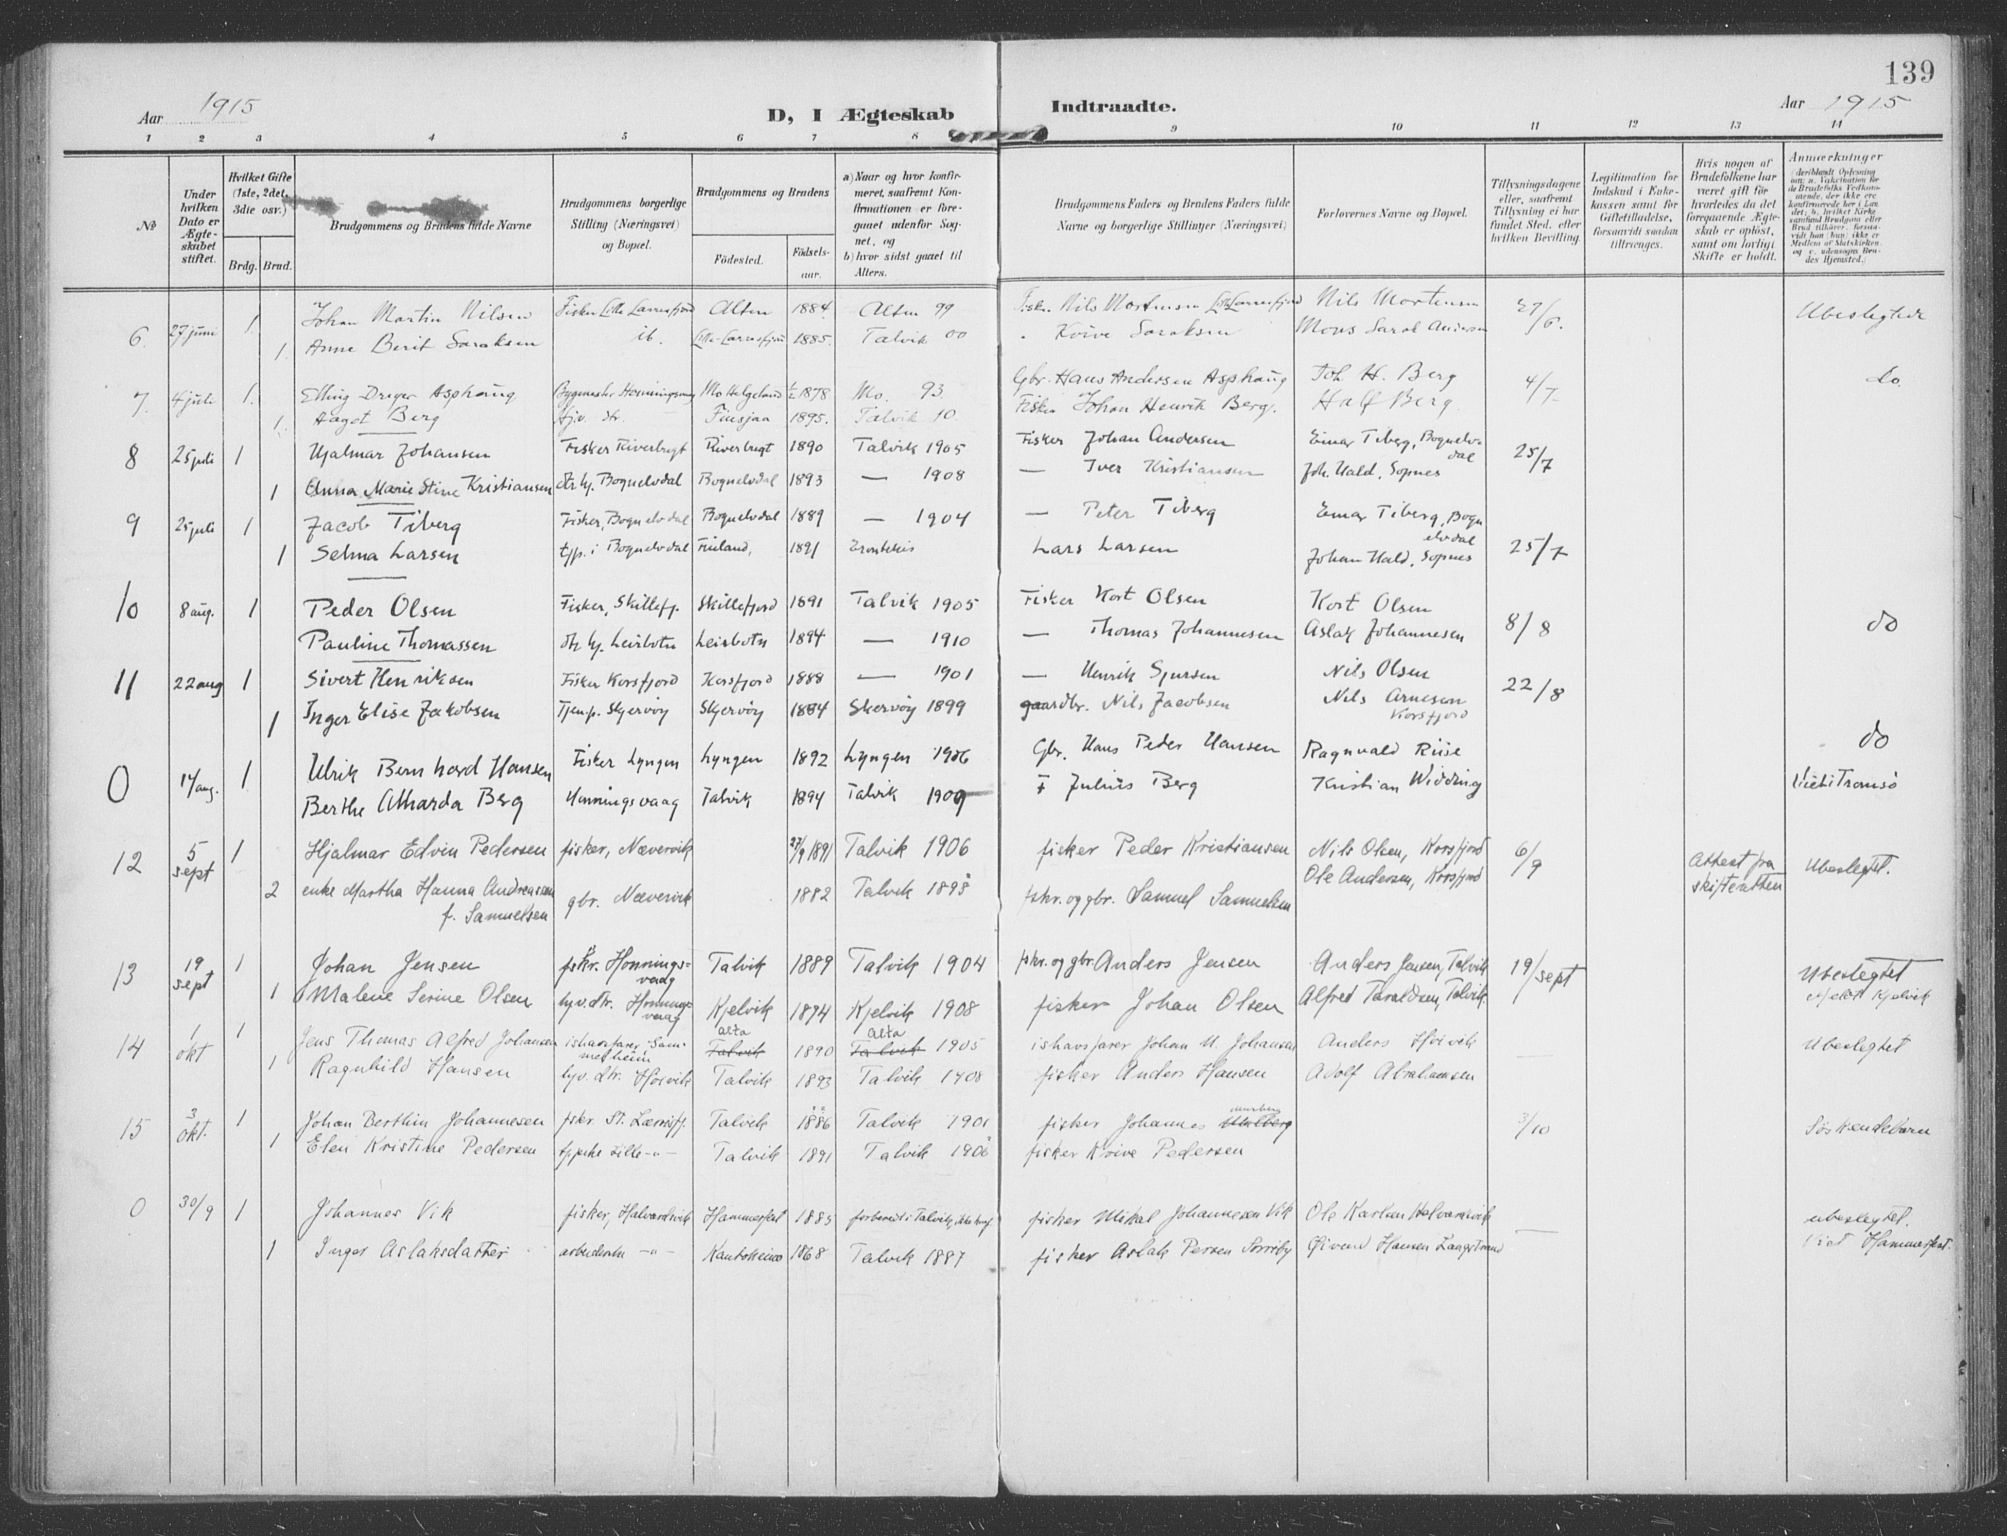 139
Aar 1915
D, I Ægteskab Indtraadte.
Aar 1915
1 2 3 4 5 6 7 8 9 10 11 12 13 14
№
Under hvilken Dato er Ægteskabet stiftet.
Hvilket Gifte (1ste, 2det, 3die osv.)
Brdg. Brud.
Brudgommens og Brudens fulde Navne
Brudgommens borgerlige Stilling (Næringsvei) og Bopæl.
Brudgommens og Brudens
Fødested.
Fødselsaar.
a) Naar og hvor konfirmeret, saafremt Konfirmationen er foregaaet udenfor Sognet, og
b) hvor sidst gaaet til Alters.
Brudgommens Faders og Brudens Faders fulde Navne og borgerlige Stillinger (Næringsvei)
Forlovernes Navne og Bopæl.
Tillysningsdagene eller, saafremt Tillysning ei har fundet Sted, efter hvilken Bevilling.
Legitimation for Indskud i Enkekassen samt for Giftetilladelse, forsaavidt saadan tiltrænges.
Hvis nogen af Brudefolkene har været gift før hvorledes da det foregaaende Ægteskab er opløst, samt om lovligt Skifte er holdt.
Anmærkninger
6. 27 juni 1 Johan Martin Nilsen Fisker Lille Lærresfjord Alten 1884 Alten 99 Fisker Nils Mortensen L. Lerresfjord Nils Mortensen 27/6. Ubeslegtede
1. Anne Berit Saraksen ib. Lille-Lærresfjord 1885. Talvik 00 Koive Saraksen Mons Sarak Andersen
7. 4 juli 1. Elling Dreyer Asphaug Bygmester Honningsvaag Mo Helgeland 1878 Mo. 93. Gbr. Hans Andersen Asphaug Joh. H. Berg 4/7 do.
1. Aagot Berg Hjv. dtr. 1895. Talvik 10 Fisker Johan Henrik Berg. Half Berg.
8 25 juli 1 Hjalmar Johansen Fisker Riverbugt Riverbugt 1890 Talvik 1905 Fisker Johan Andersen Einar Tiberg, Bognelvdal 25/7
1 Anna Marie Stine Kristiansen dtr hj. Bognelvdal Bognelvdal 1893 — 1908 — Iver Kristiansen Joh. Hald, Sopnes
9 25 juli 1 Jacob Tiberg Fisker, Bognelvdal Bognelvdal 1889 — 1904 — Peter Tiberg Einar Tiberg, Bognelvdal 25/7
1 Selma Larsen tjp. i Bognelvdal Finland, 1891 Enontekis Lars Larsen Johan Hald, Sopnes
10 8 aug. 1 Peder Olsen Fisker, Skillefj. Skillefjord 1891 Talvik 1905 Fisker Kort Olsen Kort Olsen 8/8 do
Pauline Thomassen dtr hj. Leirbotn Leirbotn 1894 — 1910 — Thomas Johannesen Aslak Johannesen
11 22 aug 1 Sivert Henriksen Fisker Korsfjord Korsfjord 1888 — 1901 — Henrik Sjursen Nils Olsen 22/8
1 Inger Elise Jakobsen Tjenp. Skjervöy Skjervöy 1884 Skervöy 1899 gaardbr. Nils Jacobsen Nils Arnesen Korsfjord
0 17 aug. 1 Ulrik Bernhard Hansen Fisker Lyngen Lyngen 1892 Lyngen 1906 Gbr. Hans Peder Hansen Ragnvald Riise do
Berthe Atharda Berg Honningsvaag Talvik 1894 Talvik 1909 F Julius Berg Kristian Widding Viet i Tromsö
12 5 sept 1 Hjalmar Edvin Pedersen fisker, Nævervik 27/9 1891 Talvik 1906 fisker Peder Kristiansen Nils Olsen, Korsfjord 6/9 Attest fra skifteretten Ubeslegtet.
2 enke Martha Hanna Andreassen f. Samuelsen gbr. Nævervik 1882 Talvik 1898 fskr. og gbr. Samuel Samuelsen Ole Andersen, Korsfjord
13 19 sept 1 Johan Jensen fskr. Honningsvaag Talvik 1889 Talvik 1904 fskr. og gbr. Anders Jensen Anders Jensen, Talvik 19/sept Ubeslegtet
1 Malene Serine Olsen hjv. dtr. Honningsvaag Kjelvik 1894 Kjelvik 1908 fisker Johan Olsen Alfred Taraldsen, Talvik Kjelvik
14 1 okt 1 Jens Thomas Alfred Johansen ishavsfarer Sammetheim Alta Talvik 1890 Alta Talvik 1905 ishavsfarer Johan U. Johansen Anders Hoivik — Ubeslegtet
1 Ragnhild Hansen hjv. dtr. Hoivik Talvik 1893 Talvik 1908 fisker Anders Hansen Adolf Abrahamsen
15 3 okt. 1 Johan Berthin Johannesen fskr. St. Lærrisfj. Talvik 1886 Talvik 1901 fisker Johannes 3/10 Söskendebarn
1 Elen Kristine Pedersen Lille -"- Talvik 1891 Talvik 1906 fisker Koive Pedersen
0 30/9 1 Johannes Vik fisker, Halvardsvik Hammerfest 1885 forberedt i Talvik, ikke konf. fisker Mikal Johannesen Vik Ole Karlsen Halvardsvik — ubeslegtet.
1 Inger Aslaksdatter -"- Kautokeino 1868 Talvik 1887 fisker Aslak Persen Sorrisby Øivend Hansen Langstrand Viet Hammerfest.